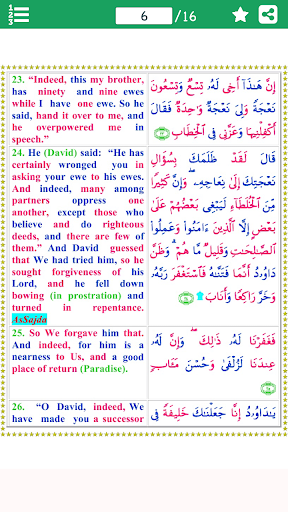 1
2
3
6 /16
23. “Indeed, this my brother,
has ninety and nine ewes
while I have one ewe. So he
said, hand it over to me, and
he overpowered me in
speech.”
إِنَّ هَـٰذَآ أَخِى لَهُۥ تِسْعٌ وَتِسْعُونَ
نَعْجَةً وَلِىَ نَعْجَةٌ وَٰحِدَةٌ فَقَالَ
أَكْفِلْنِيهَا وَعَزَّنِى فِى ٱلْخِطَابِ
24. He (David) said: “He has
certainly wronged you in
asking your ewe to his ewes.
And indeed, many among
partners oppress one
another, except those who
believe and do righteous
deeds, and there are few of
them.” And David guessed
that We had tried him, so he
sought forgiveness of his
Lord, and he fell down
bowing (in prostration) and
turned in repentance.
AsSajda
قَالَ لَقَدْ ظَلَمَكَ بِسُؤَالِ
نَعْجَتِكَ إِلَىٰ نِعَاجِهِۦ ۖ وَإِنَّ كَثِيرًا
مِّنَ ٱلْخُلَطَآءِ لَيَبْغِى بَعْضُهُمْ عَلَىٰ
بَعْضٍ إِلَّا ٱلَّذِينَ ءَامَنُوا۟ وَعَمِلُوا۟
ٱلصَّـٰلِحَـٰتِ وَقَلِيلٌ مَّا هُمْ ۗ وَظَنَّ
دَاوُۥدُ أَنَّمَا فَتَنَّـٰهُ فَٱسْتَغْفَرَ رَبَّهُۥ
وَخَرَّ رَاكِعًا وَأَنَابَ ۩
25. So We forgave him that.
And indeed, for him is a
nearness to Us, and a good
place of return (Paradise).
فَغَفَرْنَا لَهُۥ ذَٰلِكَ ۖ وَإِنَّ لَهُۥ
عِندَنَا لَزُلْفَىٰ وَحُسْنَ مَـَٔابٍ
26. “O David, indeed, We
have made you a successor
يَـٰدَاوُۥدُ إِنَّا جَعَلْنَـٰكَ خَلِيفَةً فِى